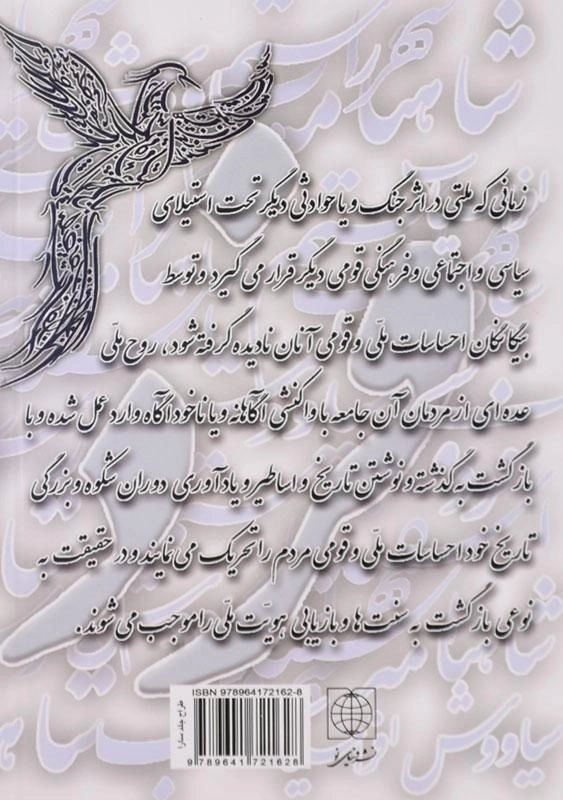 زمانی که ملتی در اثر جنگ و یا حوادثی دیگر تحت استیلای
سیاسی و اجتماعی و فرهنگی قومی دیگر قرار می گیرد و توسط
بیگانگان احساسات ملّی و قومی آنان نادیده گرفته شود، روح ملّی
عده ای از مردمان آن جامعه با واکنشی آگاهانه و یا ناخودآگاه وارد عمل شده و با
بازگشت به گذشته و نوشتن تاریخ و اساطیر و یادآوری دوران شکوه و بزرگی
تاریخ خود احساسات ملّی و قومی مردم را تحریک می نمایند و در حقیقت به
نوعی بازگشت به سنت ها و بازیابی هویّت ملّی را موجب می شوند.
ISBN 978964172162-8
9 789641 721628
طراح جلد سارا
نشر دنیای نو